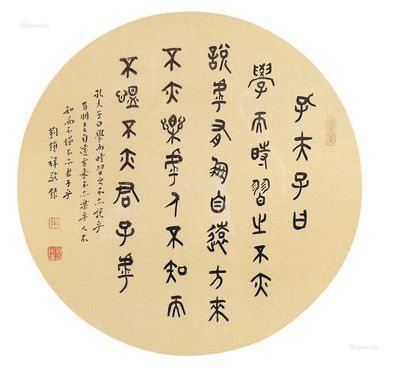 孔夫子曰
學而時習之不亦
說乎有朋自遠方來
不亦樂乎人不知而
不慍不亦君子乎
孔夫子曰學而時習之不亦說乎
有朋自遠方來不亦樂乎人不
知而不慍不亦君子乎
劉祥敬錄